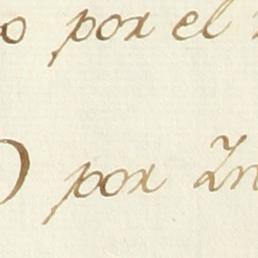 o por el
) por In